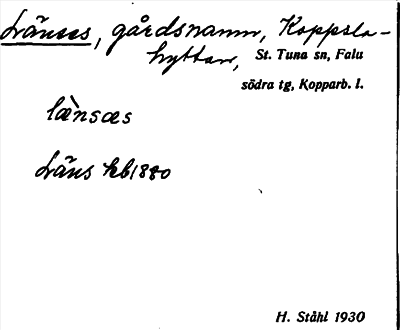 Länses, gårdsnamn, Koppsla-
hyttan, St. Tuna sn, Falu
södra tg, Kopparb. l.
læ̀nsæs
Läns hb 1880
H. Ståhl 1930